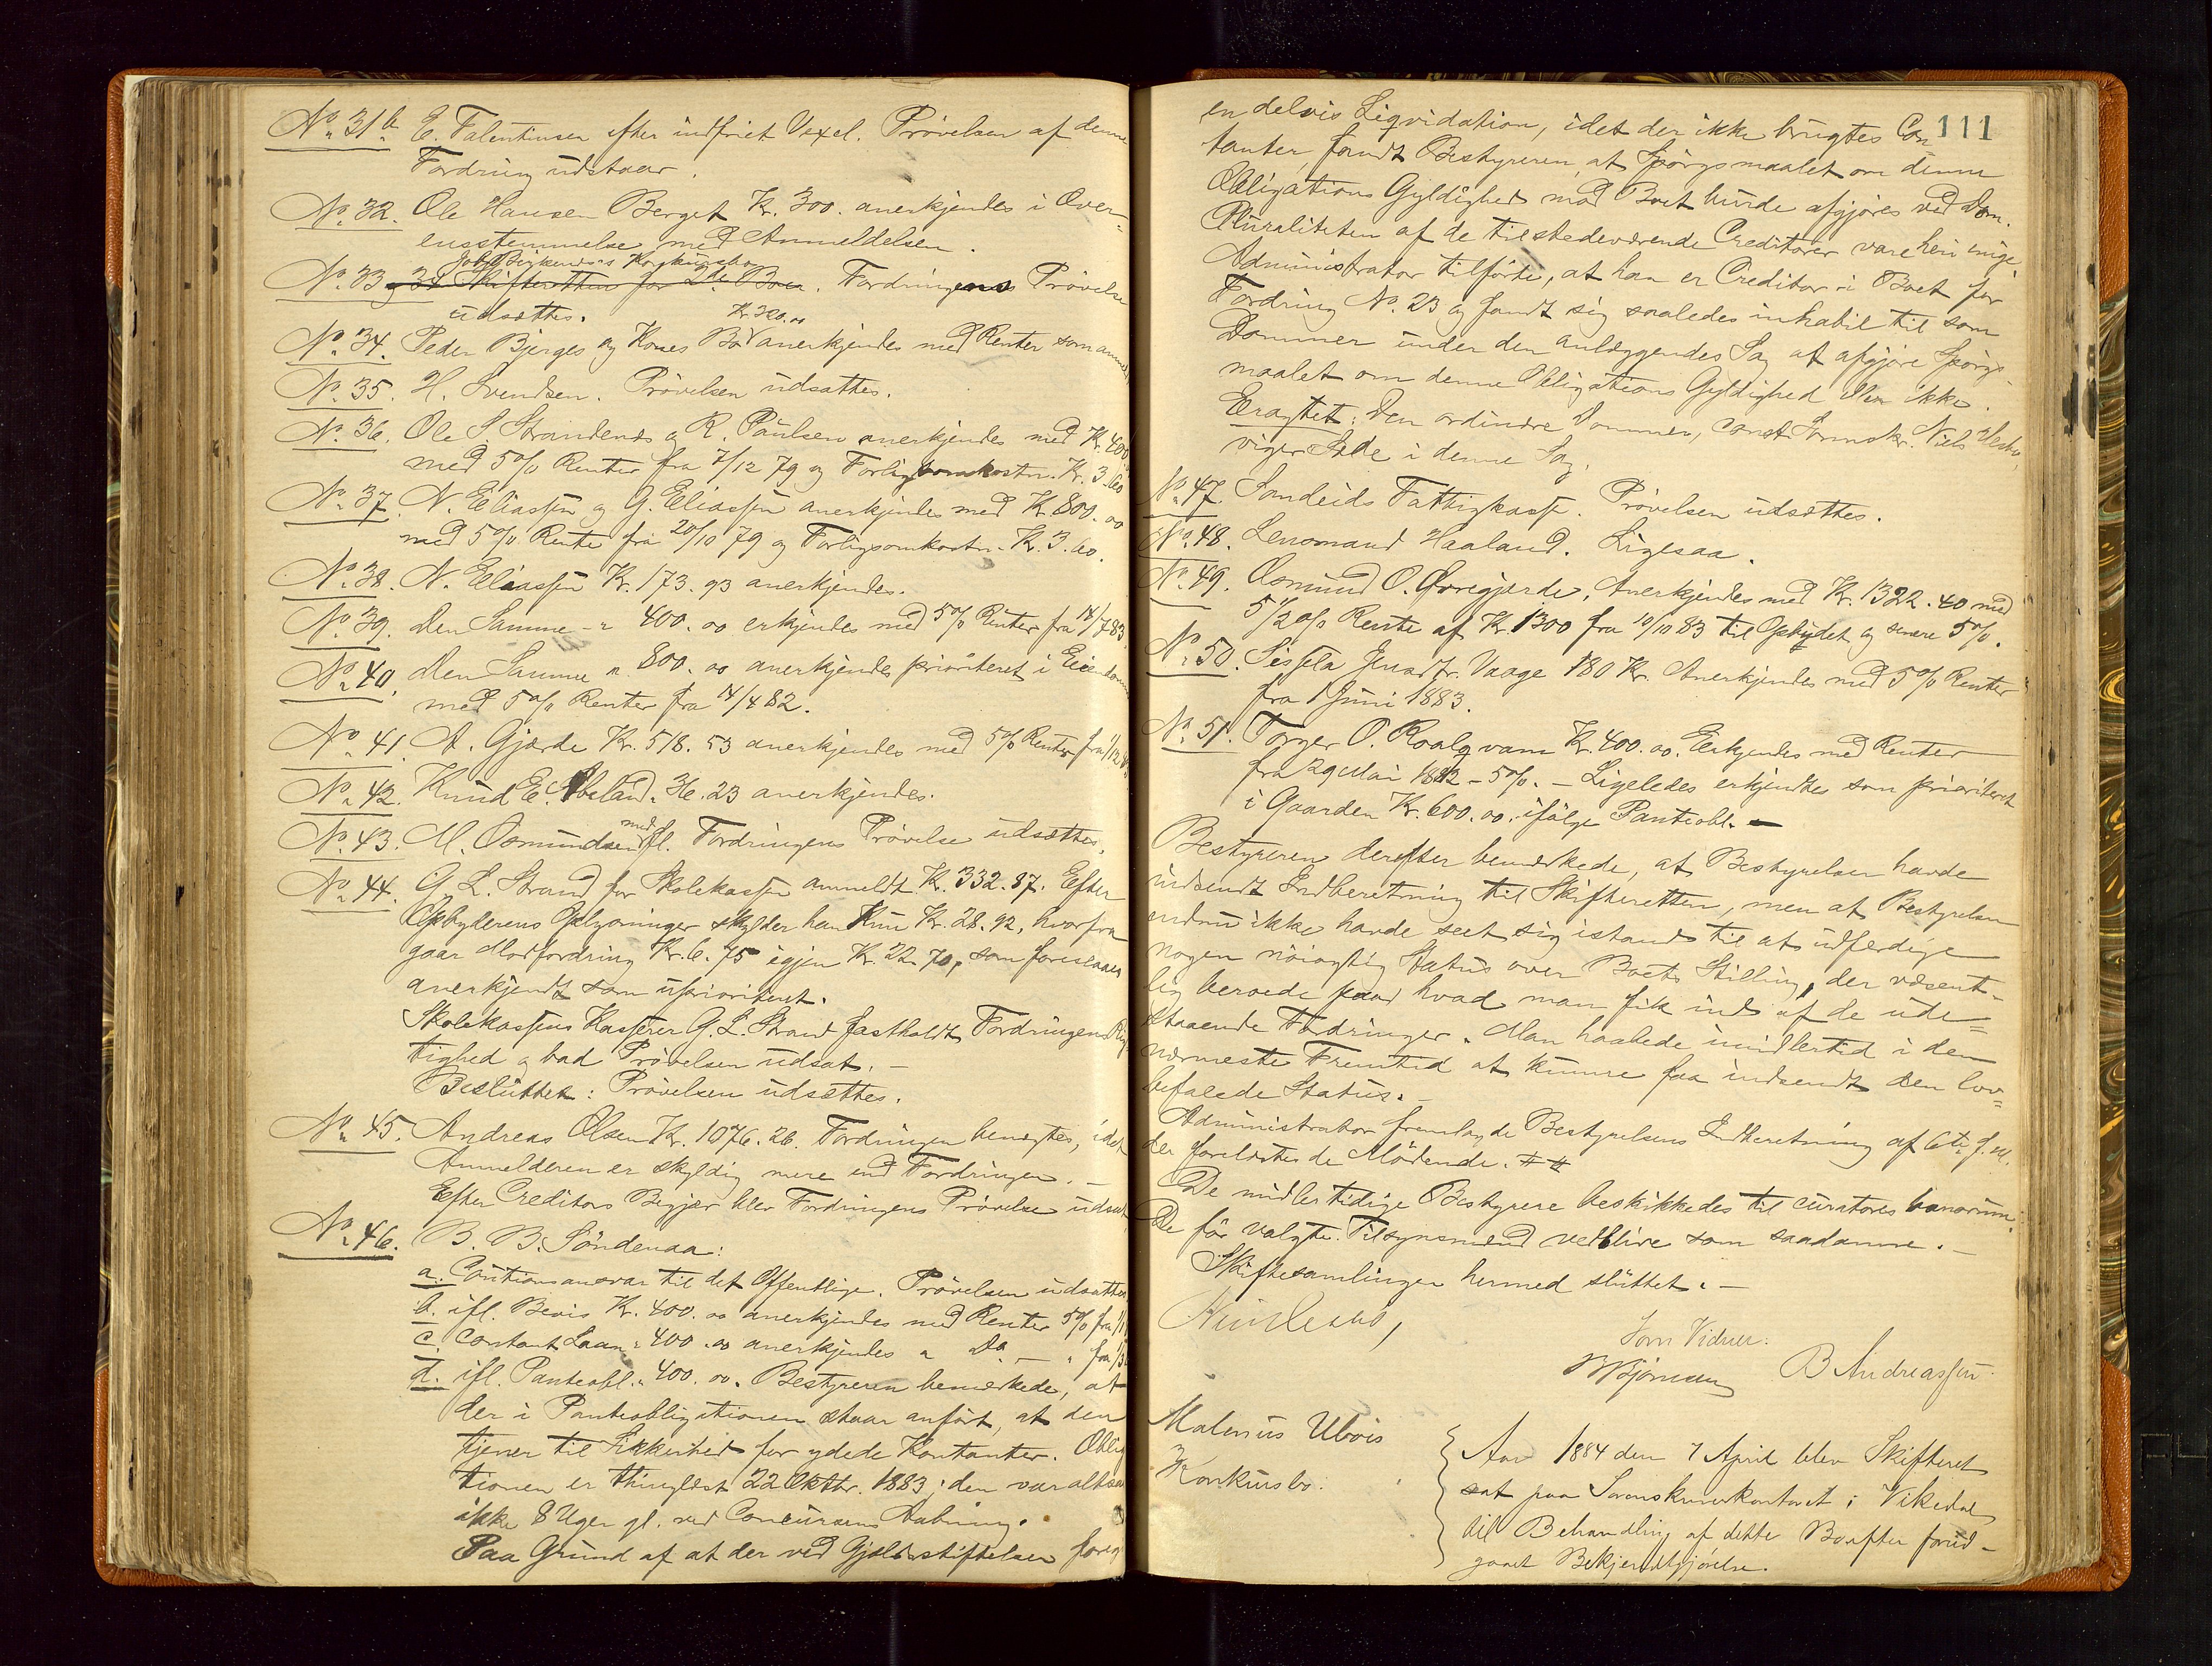 No 31b E. Falentinsen efter indfriet Vexel. Prøvelsen af denne
Fordring udstaar.
No 32. Ole Hansen Berget Kr. 300. anerkjendes i Over-
ensstemmelse med Anmeldelsen.
No 33 og 34 Skifteretten for 2de Boer. Fordringens Prøvelse
udsættes. Kr. 320.00
No 34. Peder Bjerges og Kones Bo anerkjendes med Renter som
No 35. H. Svendsen. Prøvelsen udsattes.
No 36. Ole S. Strandenes og R. Paulsen anerkjendes med Kr. 400
med 5% Renter fra 7/12 79 og Forligsomkostn. Kr. 3.60
No 37. N. Eliassen og G. Eliassen anerkjendes med Kr. 800.00
med 5% Rente fra 20/10 79 og Forligsomkostn. Kr. 3.60.
No 38. N. Eliassen Kr. 173.93 anerkjendes.
No 39. Den Samme - " 400.00 erkjendes med 5% Renter fra 14/7 83
No 40. Den Samme " 800.00 anerkjendes prioriteret i Eiendom
med 5% Renter fra 14/4 82.
No 41. A. Gjærde Kr. 518.53 anerkjendes med 5% Renter fra
No 42. Knud E. 36.23 anerkjendes.
No 43. M. Osmundsen med fl. Fordringens Prøvelse udsættes.
No 44. G. L. Strand for Skolekassen anmeldt Kr. 332.87. Efter
Opbyderens Oplysninger skylder han kun Kr. 28.92, hvorfra
gaar Modfordring Kr. 6.75 igjen Kr. 22.70, som foreslaaes
anerkjendt som uprioriteret.
Skolekassens Kasserer G. L. Strand fastholdt Fordringens Rig-
tighed og bad Prøvelsen udsat. -
Besluttet: Prøvelsen udsættes.
No 45. Andreas Olsen Kr. 1076.26. Fordringen benegtes, idet
Anmelderen er skyldig mere end Fordringen. -
Efter Creditors Begjær blev Fordringens Prøvelse udsat
No 46. B. B. Söndenaa:
a. Cautionsansvar til det Offentlige. Prøvelsen udsættes
b. ifl. Bevis Kr. 400.00 anerkjendes med Renter 5% fra
c. Contant Laan " 400.00 anerkjendes " Do - " fra
d. ifl. Panteobl. " 400.00. Bestyreren bemærkede, at
der i Panteobligationen staar anført, at den
tjener til Sikkerhed for ydede Kontanter. Obliga
tionen er thinglæst 22 Oktbr. 1883; den var altsaa
ikke 8 Uger gl. ved Concursens Aabning.
Paa Grund af at der ved Gjeldsstiftelsen foreg
111
en delvis Liqvidation, idet der ikke brugtes Con-
tanter, fandt Bestyreren, at Spørgsmaalet om denne
Obligations Gyldighed mod Boet burde afgjøres ved Dom.
Pluraliteten af de tilstedeværende Creditorer vare heri enige.
Administrator tilførte, at han er Creditor i Boet for
Fordring No. 23 og fandt sig saaledes inhabil til som
Dommer under den anlæggendes Sag at afgjøre Spørgs-
maalet om denne Obligations Gyldighed eller ikke.
Eragtet: Den ordinære Dommer, const. Sorenskr. Niels
viger Sæde i denne Sag.
No 47. Sandeids Fattigkasse. Prøvelsen udsættes.
No 48. Lensmand Haaland. Ligesaa.
No 49. Osmund O. Øvregjærde, Anerkjendes med Kr. 1322.40 med
5 1/2 % Rente af Kr. 1300 fra 10/10 83 til Opbydet og senere 5%.
No 50. Sissela Jensdtr. Vaage 180 Kr. Anerkjendes med 5% Renter
fra 1 Juni 1883.
No 51. Torger O. Roalqvam Kr. 400.00. Erkjendes med Renter
fra 29 Mai 1882 - 5%. - Ligeledes erkjendtes som prioriteret
i Gaarden Kr. 600.00. ifølge Panteobl. -
Bestyreren derefter bemærkede, at Bestyrelsen havde
indsendt Indberetning til Skifteretten, men at Bestyrelsen
endnu ikke havde seet sig istand til at udferdige
nogen nöiagtig Status over Boets Stilling, der væsent-
lig beroede paa, hvad man fik ind af de ude-
staaende Fordringer. Man haabede imidlertid i den
nærmeste Fremtid at kunne faa indsendt den lov-
befalede Status. -
Administrator fremlagde Bestyrelsens Indberetning af 6te f.M.
der forelæstes de Mødende.
De midlertidige Bestyrere beskikkedes til curatores bonorum.
De før valgte Tilsynsmænd vedblive som saadanne. -
Skiftesamlingen hermed sluttet. -
Som Vidner:
B Andreassen
Malenus Ubøis
Konkursbo.
Aar 1884 den 7 April blev Skifteret
sat paa Sorenskriverkontoret i Vikedal
til Behandling af dette Bo efter forud-
gaaet Bekjendtgjørelse.